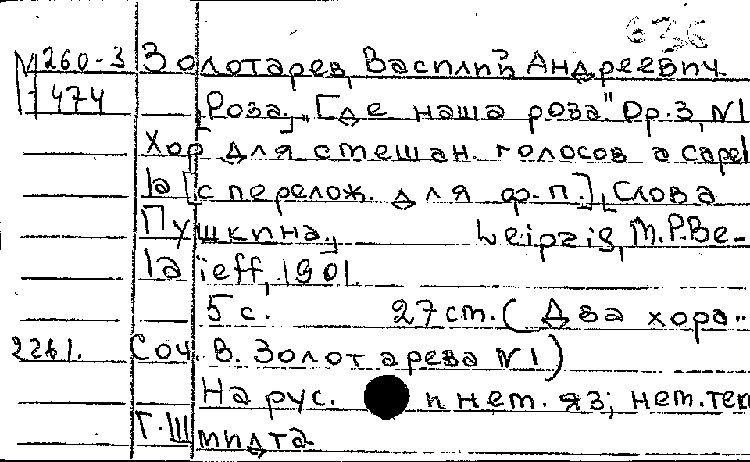 636
М260-3 Золотарев, Василий Андреевич.
474 [Роза.] "Где наша роза" Op. 3, N1
Хор для смешан. голосов a capel
la [с перелож. для ф.п.], Слова
Пушкина, Leipzig, M.P. Be-
laieff, 1901.
5 с. 27 cm. (Два хора..
2261. Соч. В. Золотарева N1)
На рус. и нем. яз; нем. тек
Г. Шмидта